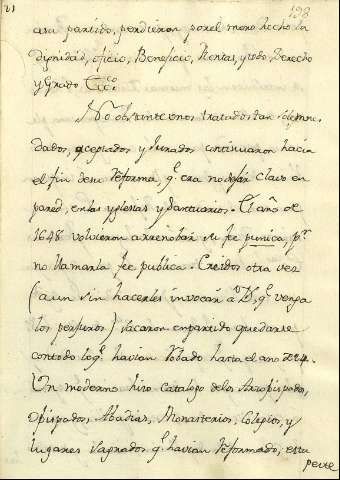 21 128
asu partido, perdieron porel mero hecho la
dignidad, oficio, Beneficio, Rentas, ytodo Derecho
y Grado
No obstante unos tratados tan solemnes
dados, aceptados y jurados continuaron hacia
el fin desu Reforma qᵉ era no dejár Clavo en
pared, enlas yglesias y Santuarios. El año de
1648 volvieron arrenobár su fee punica pʳ
no llamarla fee publica. Creidos otra vez
(aun sin hacerles invocár á D.ˢ qᵉ venga
los perjuros) sacaron enpartido quedarse
contodo loqᵉ havian Robado hasta el año de 24.
Un moderno hizo catalogo delos Arzobispados,
Obispados, Abadias, Monasterios, Colegios, y
lugares sagrados qᵉ havian Reformado, esta
peste